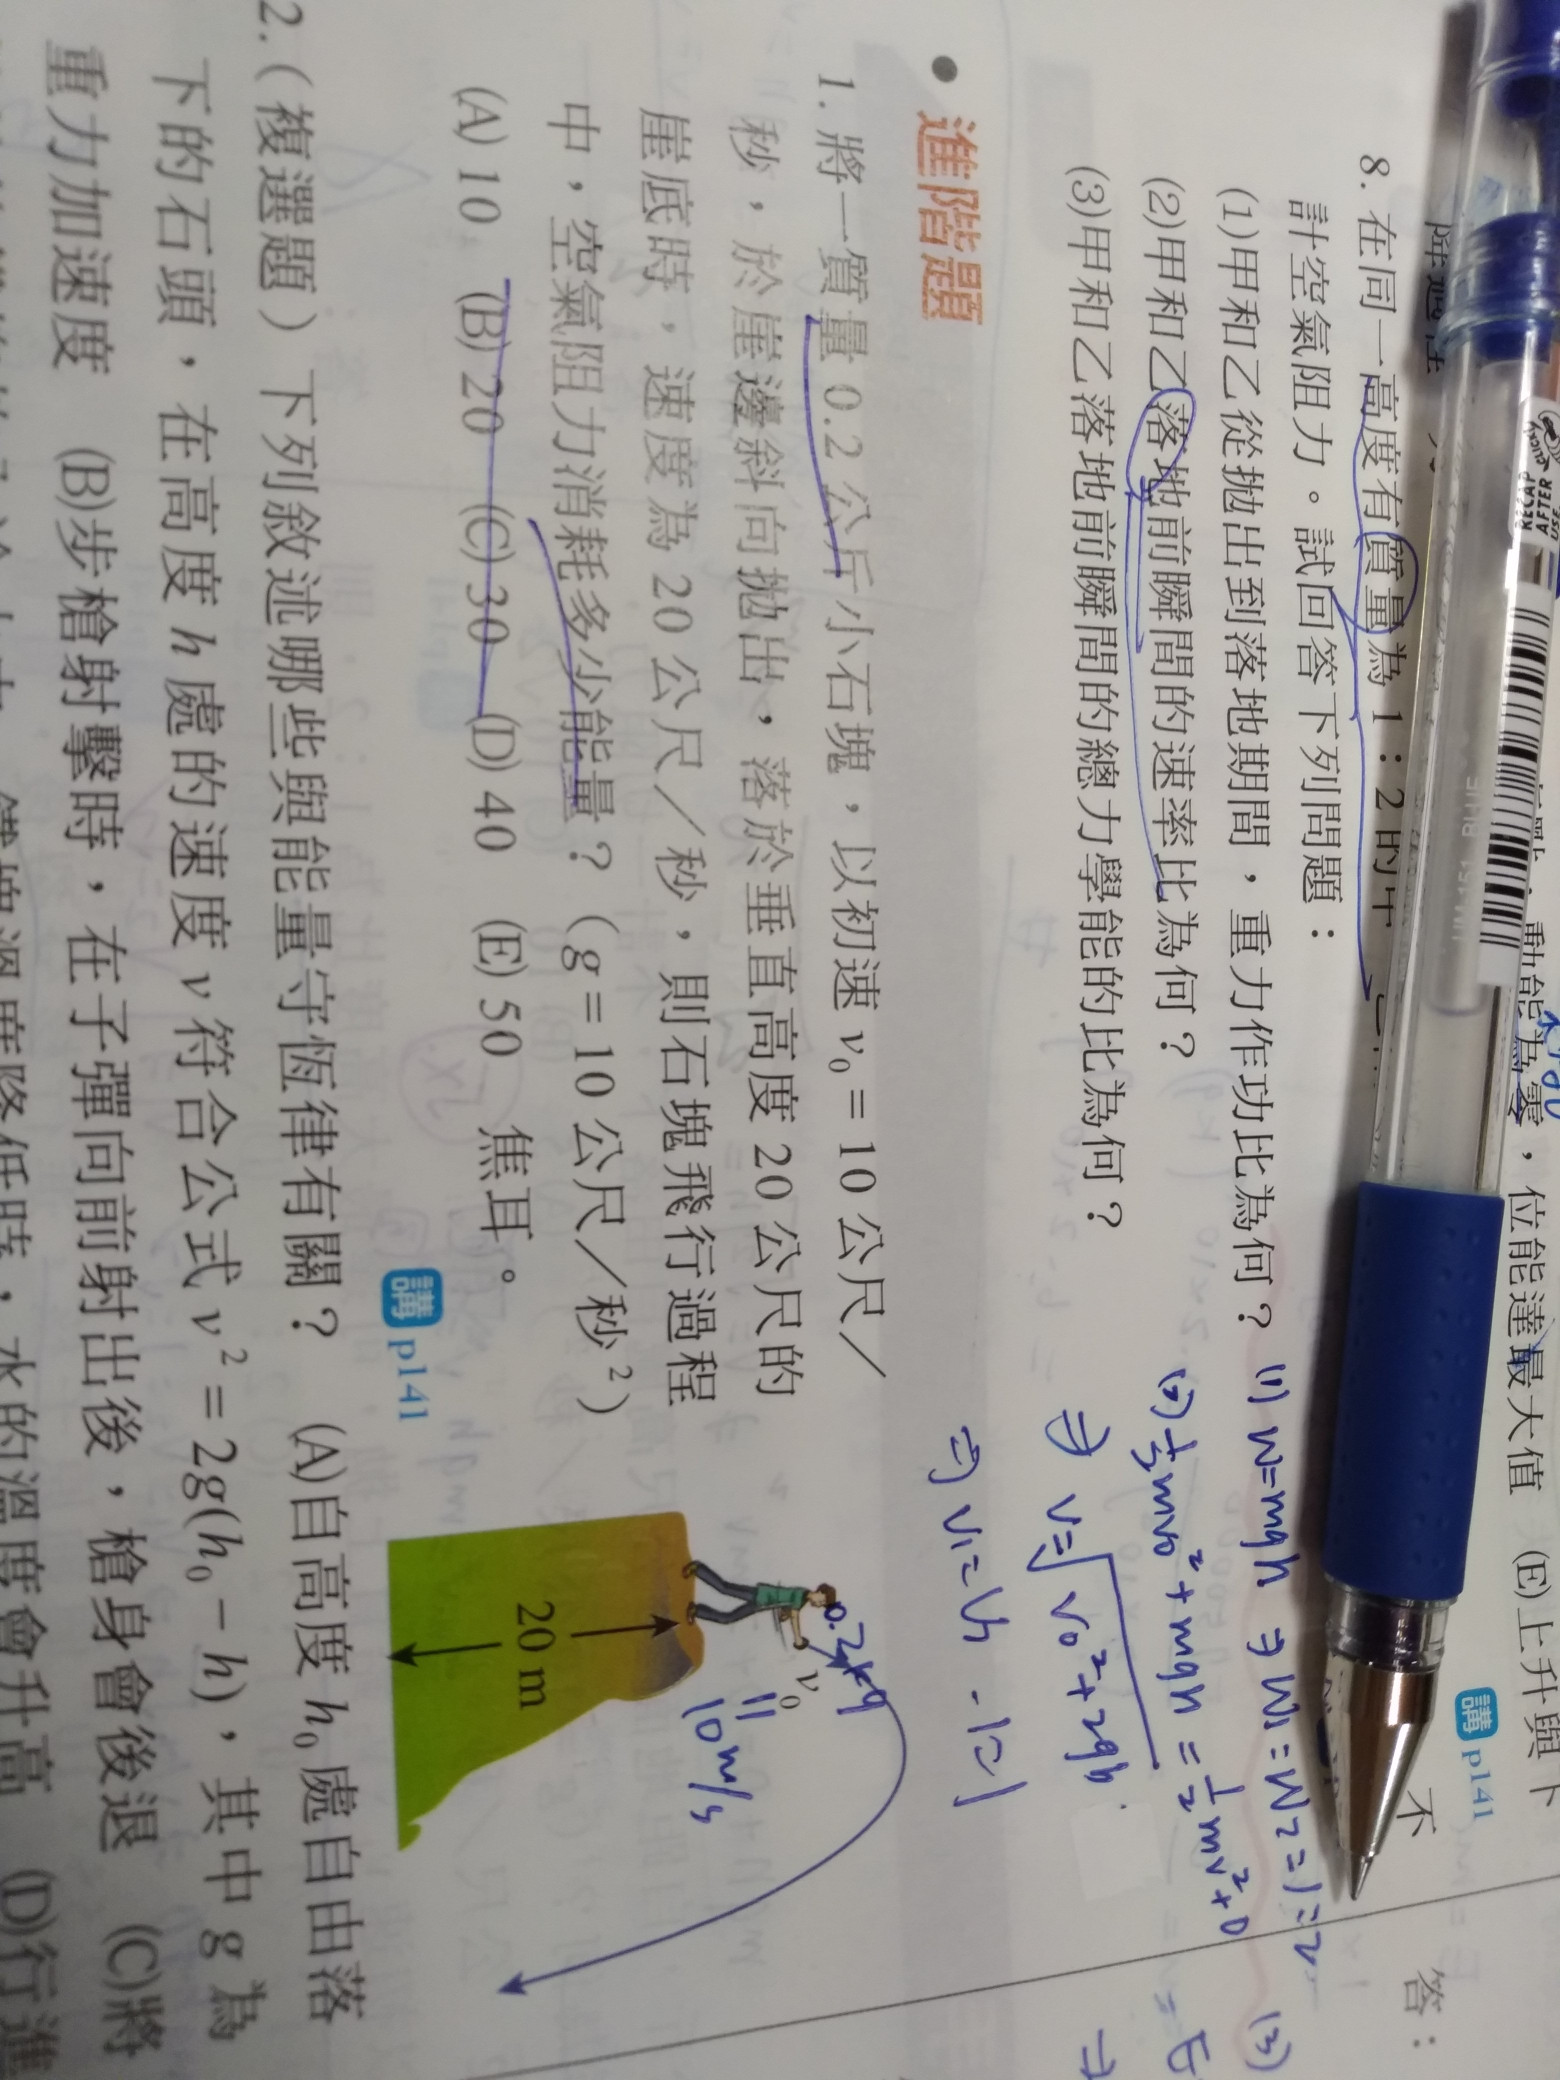 動能為零，位能達最大值　(E)上升與下
講 p141
不
答：
8. 在同一高度有質量為 1：2 的
計空氣阻力。試回答下列問題：
(1)甲和乙從拋出到落地期間，重力作功比為何？
(2)甲和乙落地前瞬間的速率比為何？
(3)甲和乙落地前瞬間的總力學能的比為何？
(1) W=mgh ⇒ W1:W2=1:2
(2) ½mv0²+mgh=½mv²+0
⇒ v=√v0²+2gh
(3)
• 進階題
1. 將一質量 0.2 公斤小石塊，以初速 v0 = 10 公尺／
秒，於崖邊斜向拋出，落於垂直高度 20 公尺的
崖底時，速度為 20 公尺／秒，則石塊飛行過程
中，空氣阻力消耗多少能量？（g = 10 公尺／秒²）
(A) 10　(B) 20　(C) 30　(D) 40　(E) 50　焦耳。
講 p141
0.2kg
v0
=
10m/s
20 m
2.（複選題）下列敘述哪些與能量守恆律有關？　(A)自高度 h0 處自由落
下的石頭，在高度 h 處的速度 v 符合公式 v² = 2g(h0 − h)，其中 g 為
重力加速度　(B)步槍射擊時，在子彈向前射出後，槍身會後退　(C)將
溫度降低時，水的溫度會升高　(D)行進
UM-151 BLUE
RECAP
AFTER
USE